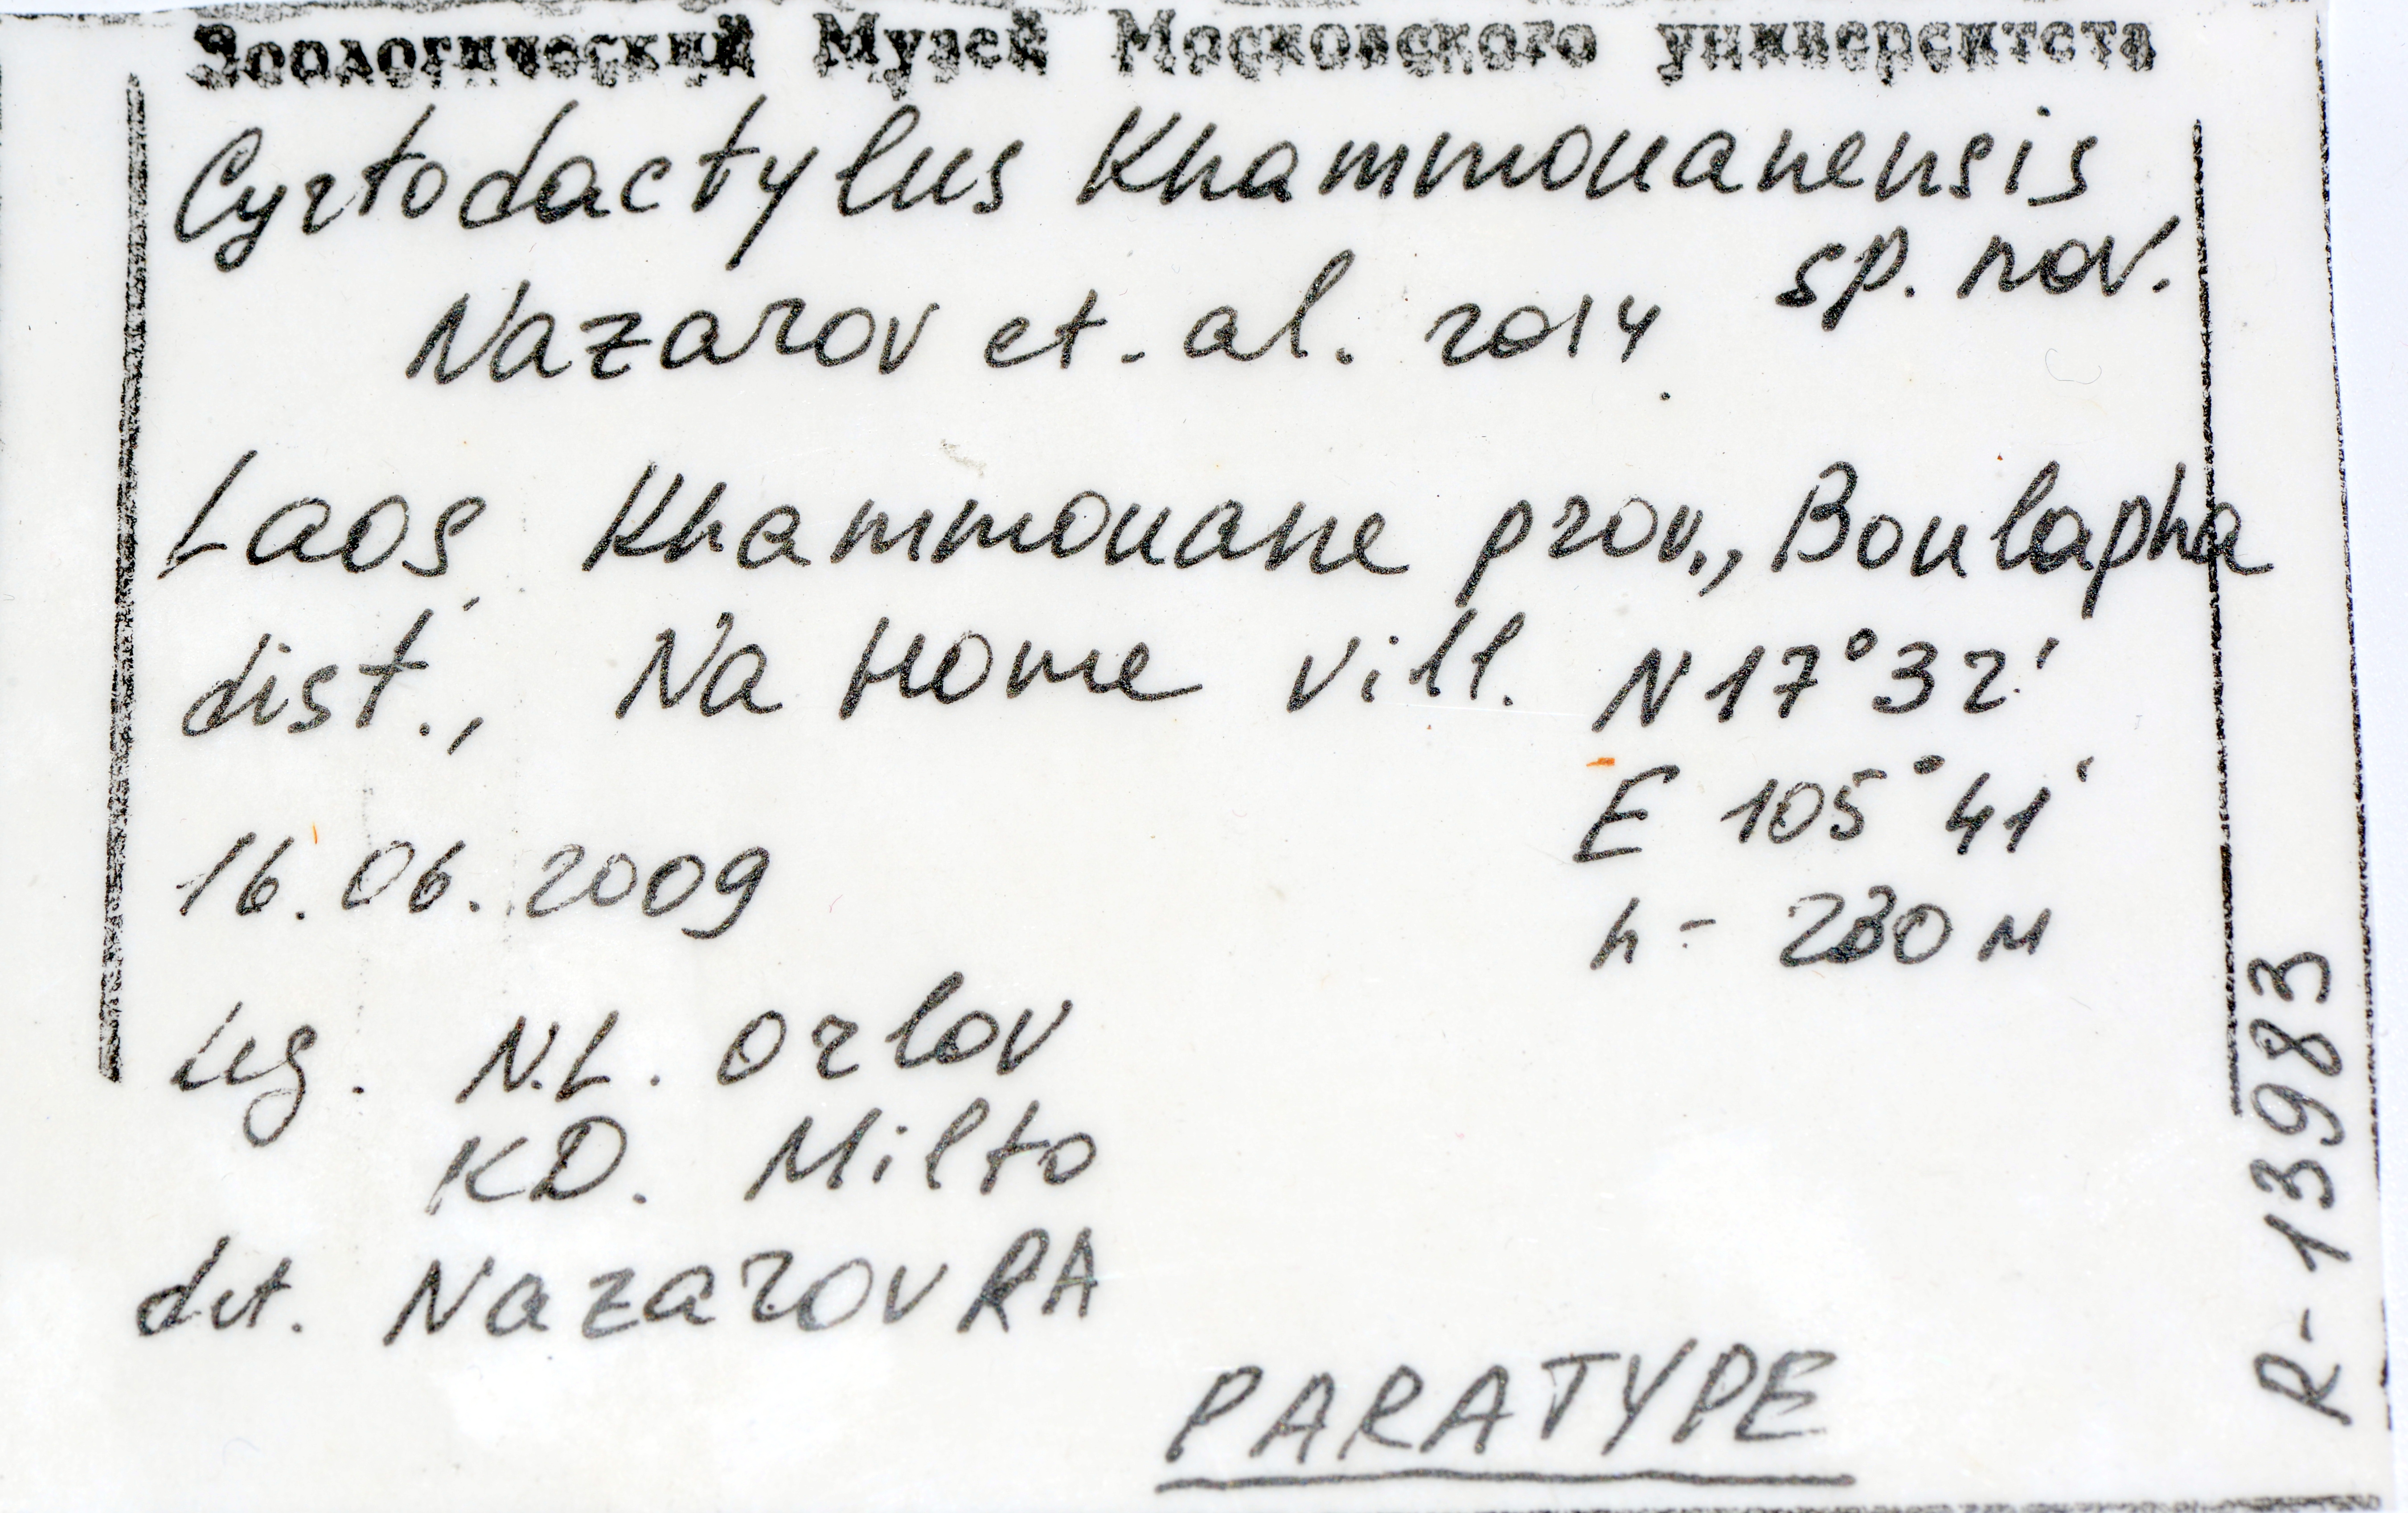 Зоологический Музей Московского университета
Cyrtodactylus Khammouanensis
sp. nov.
Nazarov et. al. 2014.
Laos, Khammouane prov., Boulapha
dist., Na Home vill. N 17°32'
E 105°41'
16.06.2009
h - 230 м
Leg. N.L. Orlov
K.D. Milto
det. Nazarov RA
PARATYPE
R-13983